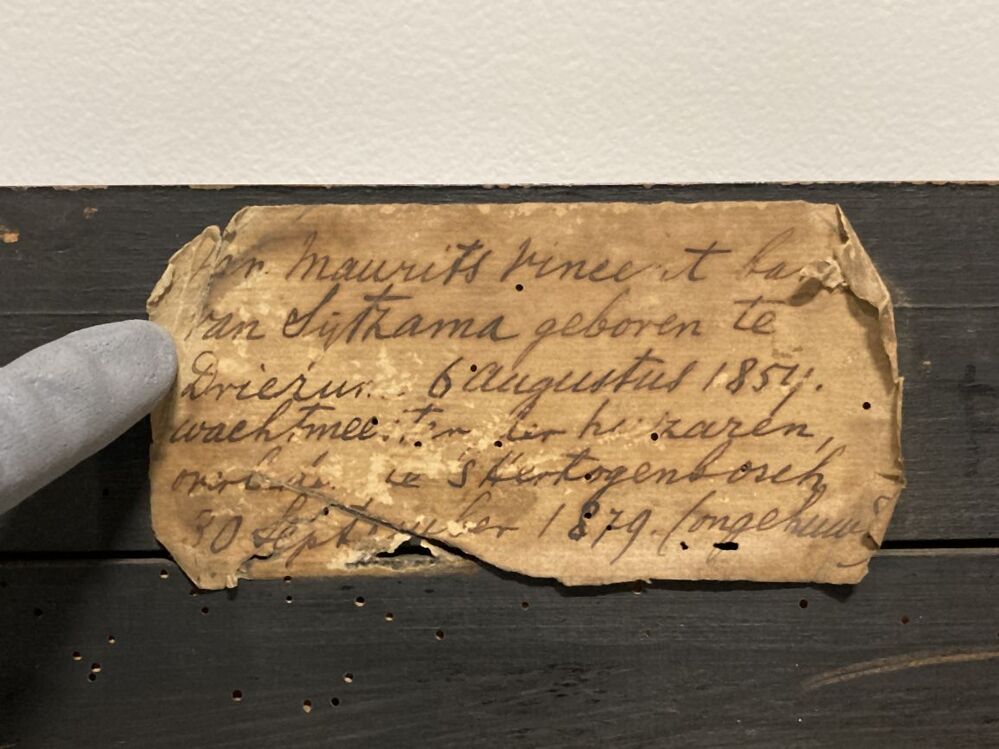 Maurits Vincent
van Sytzama geboren te
Driezum 6 augustus 1854.
wachtmeester der huzaren,
te 's Hertogenbosch
30 September 1879. (ongehuwd